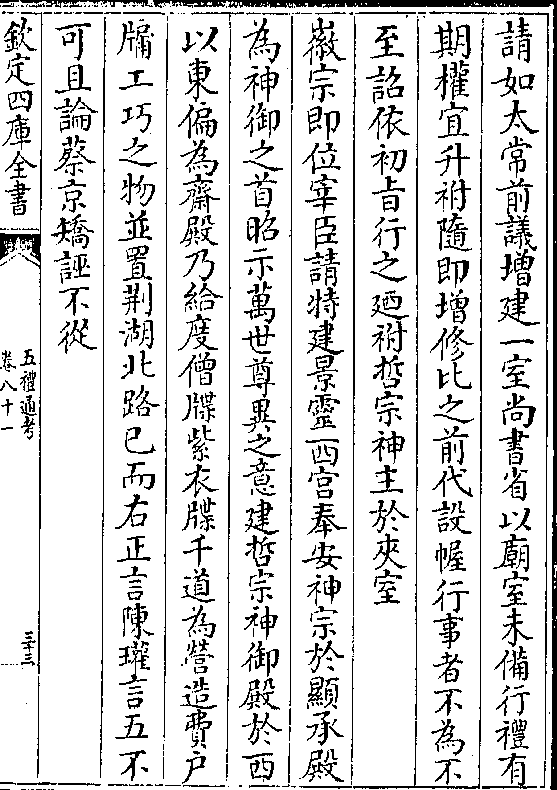 請如太常前議增建一室尚書省以廟室未備行禮有
期權宜升祔隨即增修比之前代設幄行事者不為不
至詔依初㫖行之廼祔哲宗神主於夾室
徽宗即位宰臣請特建景靈西宫奉安神宗於顯承殿
為神御之首昭示萬世尊異之意建哲宗神御殿於西
以東偏為齋殿乃給度僧牒紫衣牒千道為營造費户
牖工巧之物並置荆湖北路已而右正言陳瓘言五不
可且論蔡京矯誣不從
欽定四庫全書
五禮通考
卷八十一
三十三